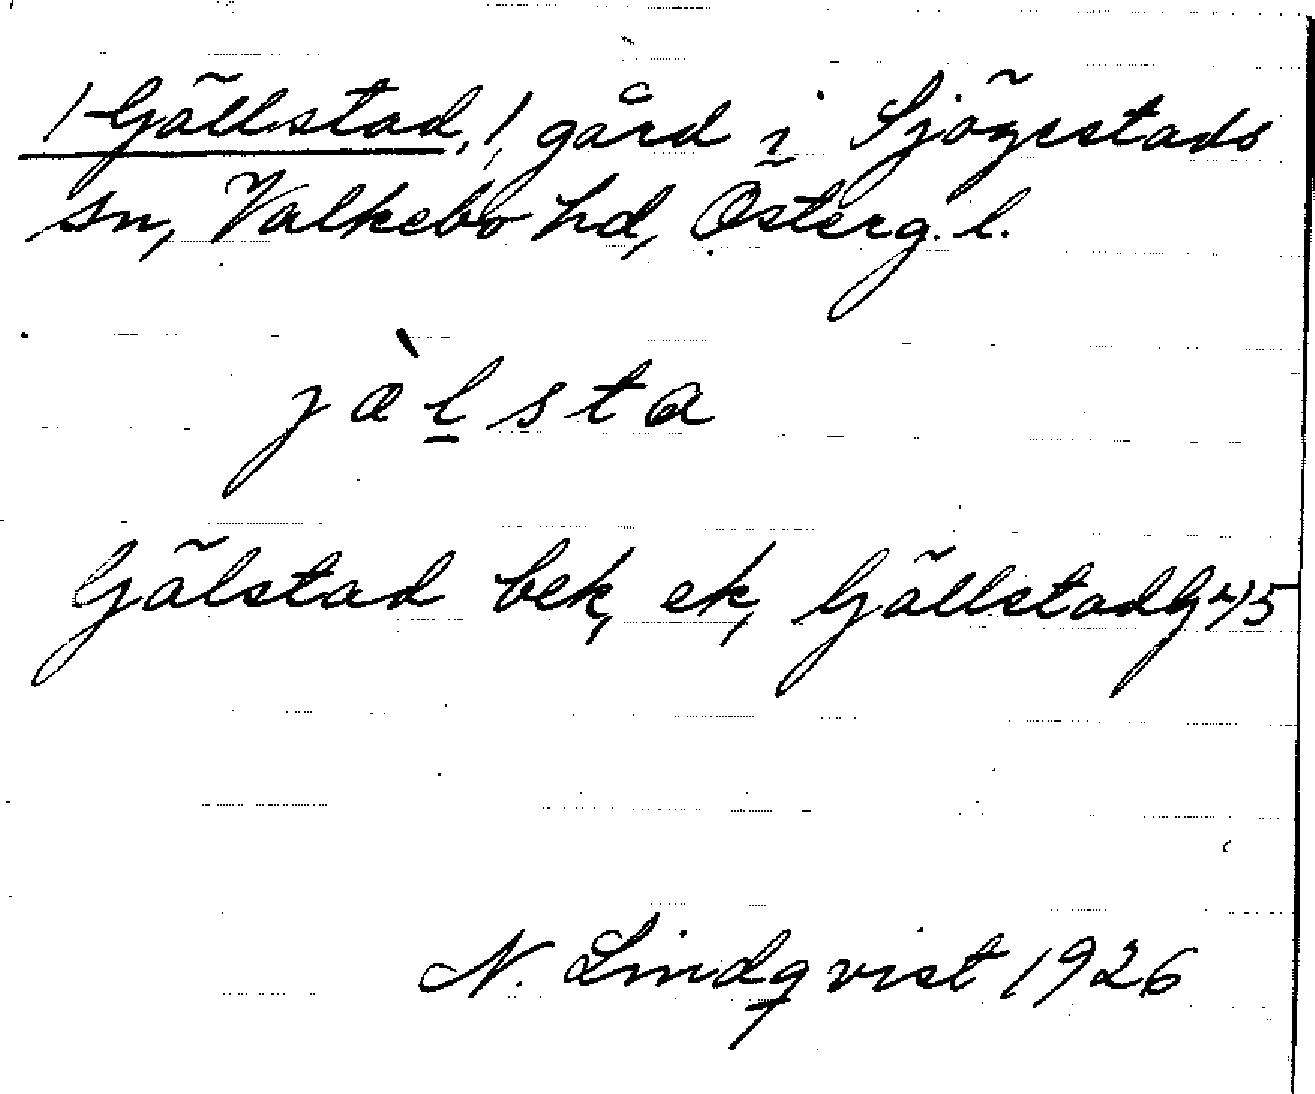 /Gällstad,/ gård i Sjögestads
sn, Valkebo hd, Österg. l.
jàlsta
Gälstad bek, ek, Gällstad G 45
N. Lindqvist 1926